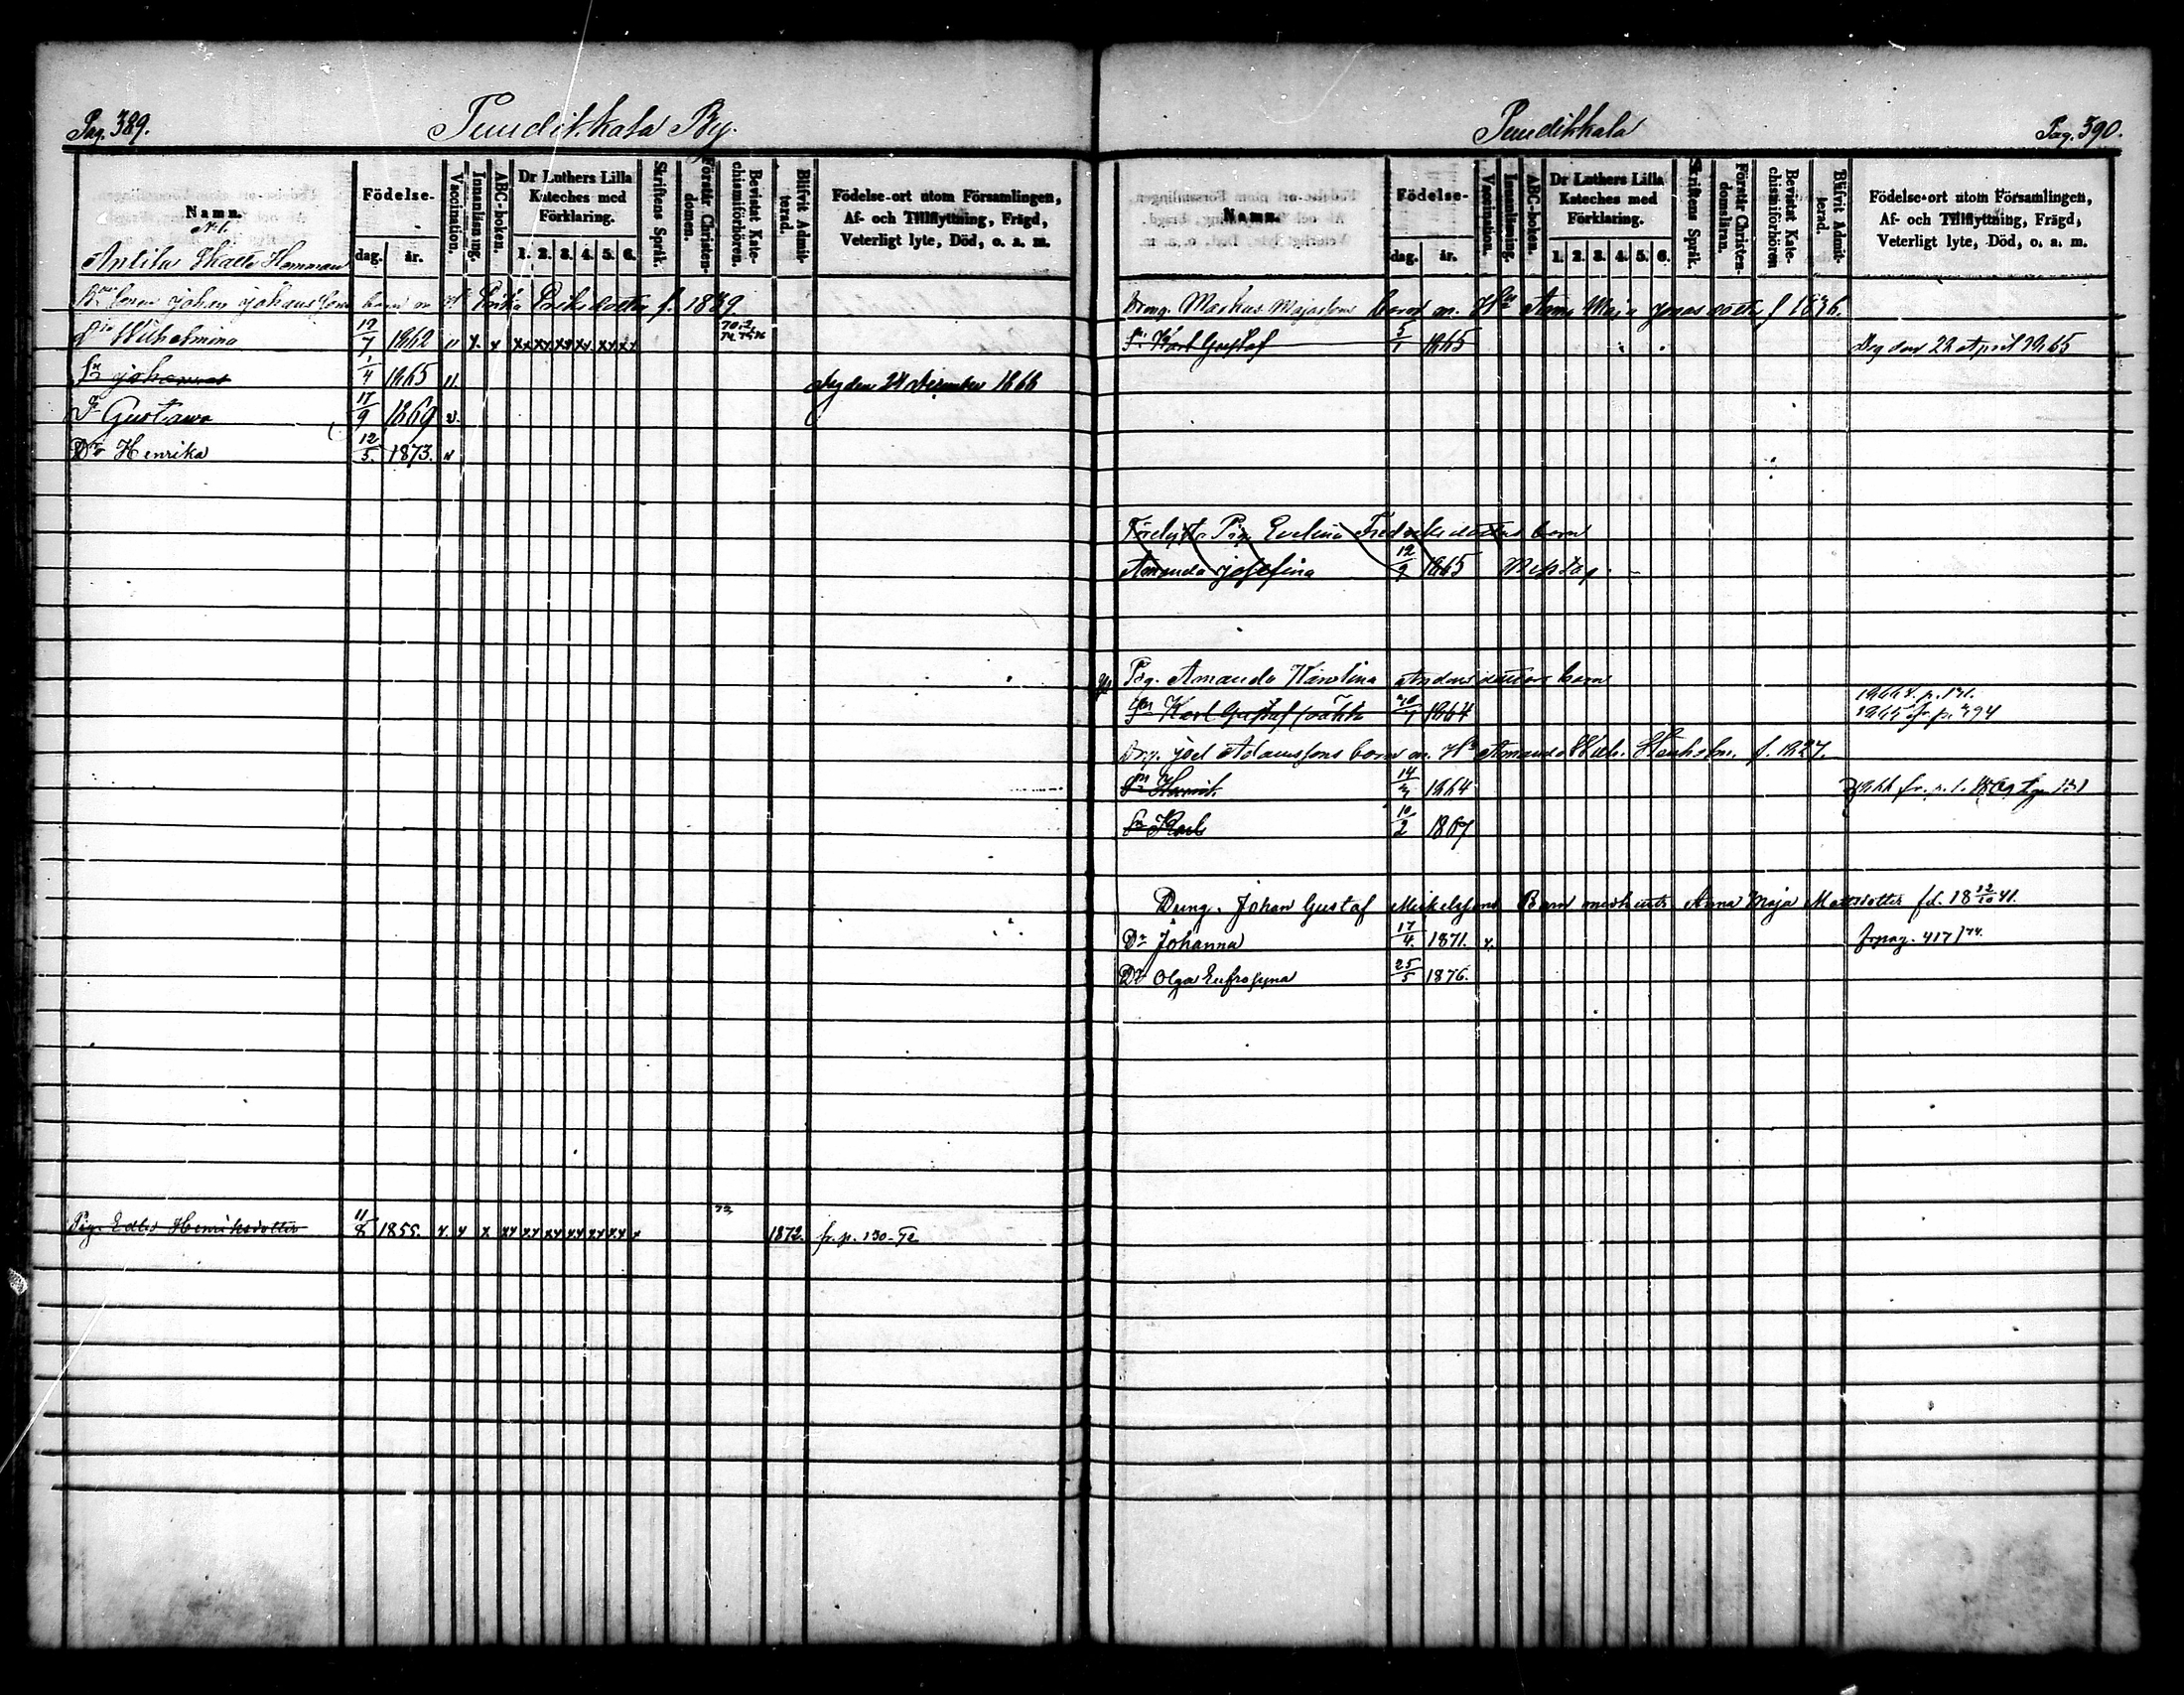 Pag. 389.
Puudikkala By.
Namn.
Födelse-
dag.
år.
Vaccination.
Innanläsning.
ABC-boken.
Dr Luthers Lilla Kateches med Förklaring.
1. 2. 3. 4. 5. 6.
Skriftens Språk.
Förstår Christen-domen.
Bevistat Kate-chismiförhören.
Blifvit Admit-terad.
Födelse-ort utom Församlingen, Af- och Tillflyttning, Frägd, Veterligt lyte, Död, o. a. m.
N:o 1.
Antila Skatte Hemman
Johan Johanssons barn m. H. Erika Eriksdotter f. 1839.
Dr Wilhelmina 19/7 1862
Sn Johannes 1/4 1865 Dog den 24 December 1866
Dr Gustava 17/9 1869 v.
Dr Henrika 12/5. 1873. v
Pig. Edla Henriksdotter 11/8 1855. 73, 1872. fr. p. 130-72
Puudikkala
Pag. 390.
Namn.
Födelse-
dag.
år.
Vaccination.
Innanläsning.
ABC-boken.
Dr Luthers Lilla Kateches med Förklaring.
1. 2. 3. 4. 5. 6.
Skriftens Språk.
Förstår Christen-domsläran.
Bevistat Kate-chismiförhören
Blifvit Admit-terad.
Födelse-ort utom Församlingen, Af- och Tillflyttning, Frägd, Veterligt lyte, Död, o. a. m.
Dreng. Markus Majassons barn m. Hu Anna Maja Jonasdotter f 1836.
Sn Karl Gustaf 5/1 1865 Dog den 22 April 1865
Pig. Evelina Fredriksdotters barn
Amanda Josefina 12/9 1865 Misstag.
Pig. Amanda Karolina Andersdotters barn
Sn Karl Gustaf 1864
Drg. Joel Adamssons barn m. H. Amanda f. 1827.
Sn Henrik 14/7 1864
Sn Karl 10/2 1867
Dreng. Johan Gustaf Mickelssons Barn med hustr. Anna Maja Mattsdotter fd. 18 12/10 41.
Dr Johanna 17/4. 1871. v. fr pag. 417/74.
Dr Olga Eufrosyna 25/5 1876.